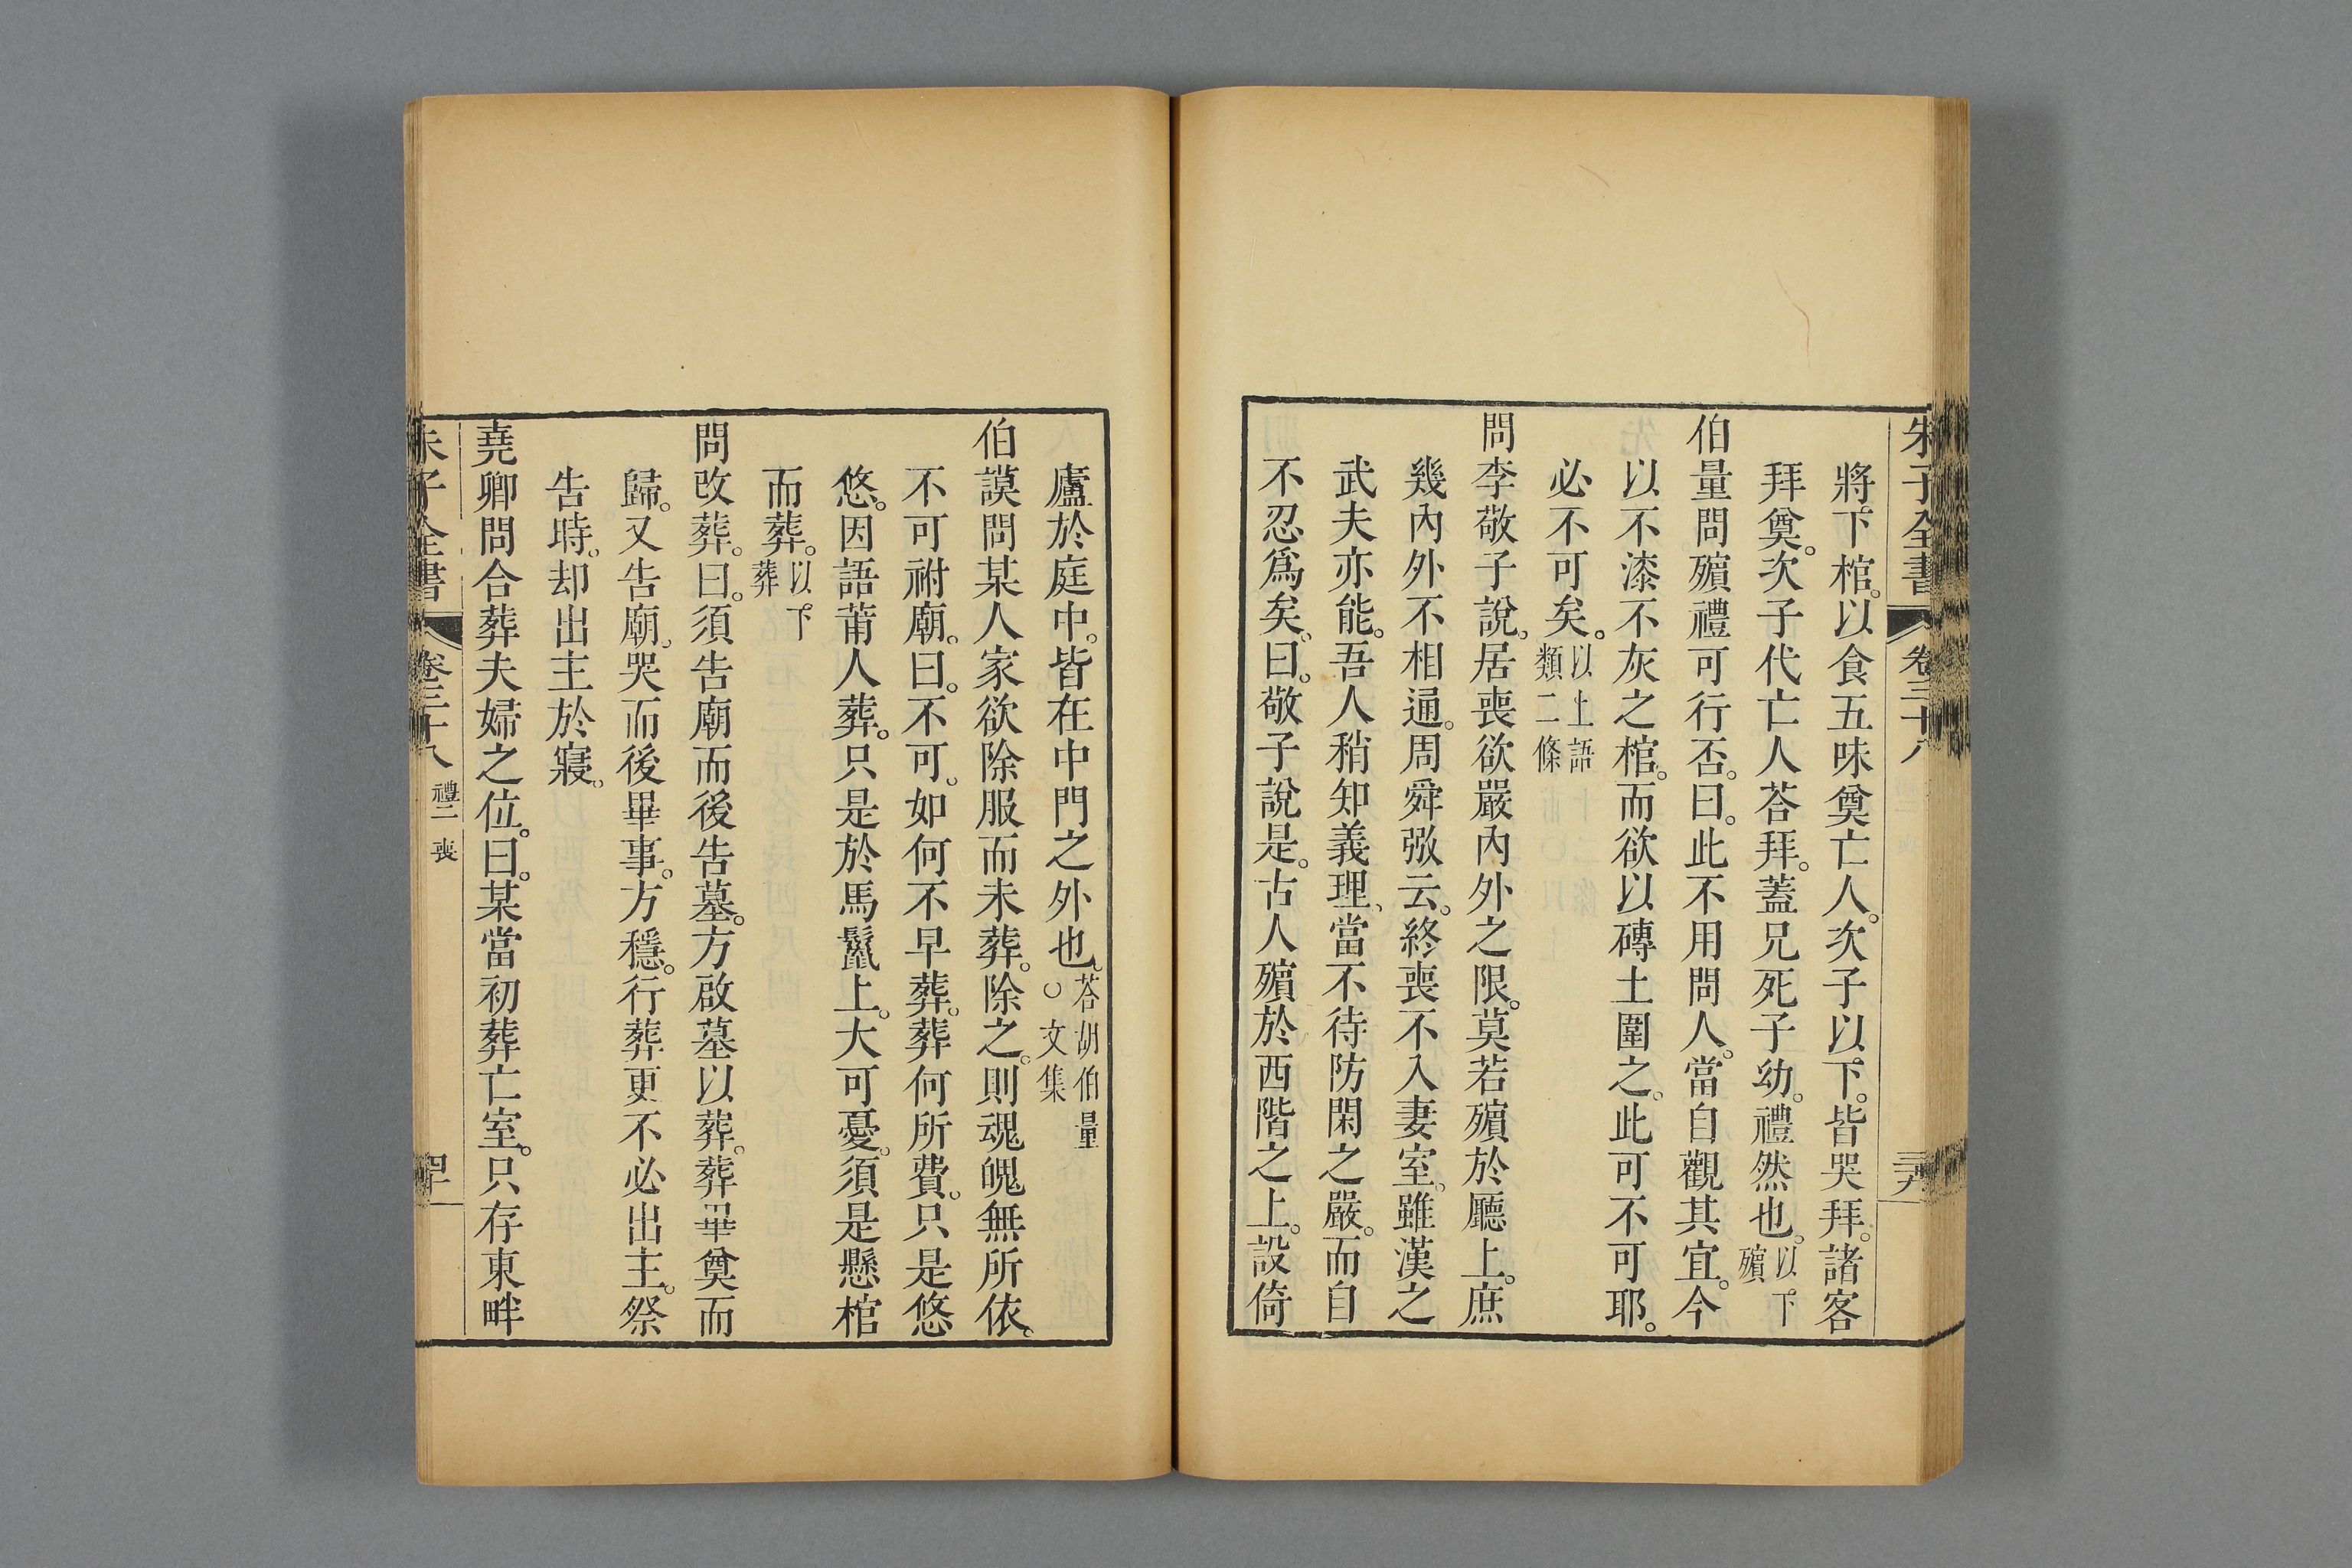 朱子全書 卷三十八 三九
將下棺。以食五味奠亡人。次子以下。皆哭拜。諸客
拜奠。次子代亡人荅拜。蓋兄死子幼。禮然也。以下殯
伯量問殯禮可行否。曰。此不用問人。當自觀其宜。今
以不漆不灰之棺。而欲以磚土圍之。此可不可耶。
必不可矣。以上語類二條
問李敬子說。居喪欲嚴內外之限。莫若殯於廳上。庶
幾內外不相通。周舜弼云。終喪不入妻室。雖漢之
武夫亦能。吾人稍知義理。當不待防閑之嚴。而自
不忍爲矣。曰。敬子說是。古人殯於西階之上。設倚
廬於庭中。皆在中門之外也。荅胡伯量○文集
伯謨問某人家欲除服而未葬。除之。則魂魄無所依。
不可祔廟。曰。不可。如何不早葬。葬何所費。只是悠
悠。因語莆人葬。只是於馬鬣上。大可憂。須是懸棺
而葬。以下葬
問改葬。曰。須告廟而後告墓。方啟墓以葬。葬畢奠而
歸。又告廟。哭而後畢事。方穩。行葬更不必出主。祭
告時。却出主於寢。
堯卿問合葬夫婦之位。曰。某當初葬亡室。只存東畔
朱子全書 卷三十八 禮二 喪 四十